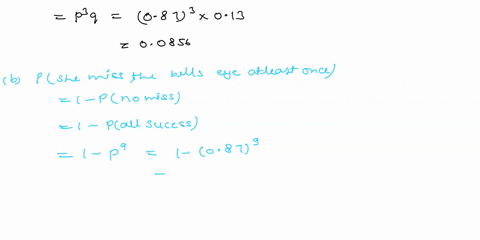 = p³q = (0.87)³ × 0.13
= 0.0856
(b) P(she miss the bulls eye atleast once)
= 1 - P(no miss)
= 1 - P(all sucess)
= 1 - p⁹ = 1 - (0.87)⁹
=